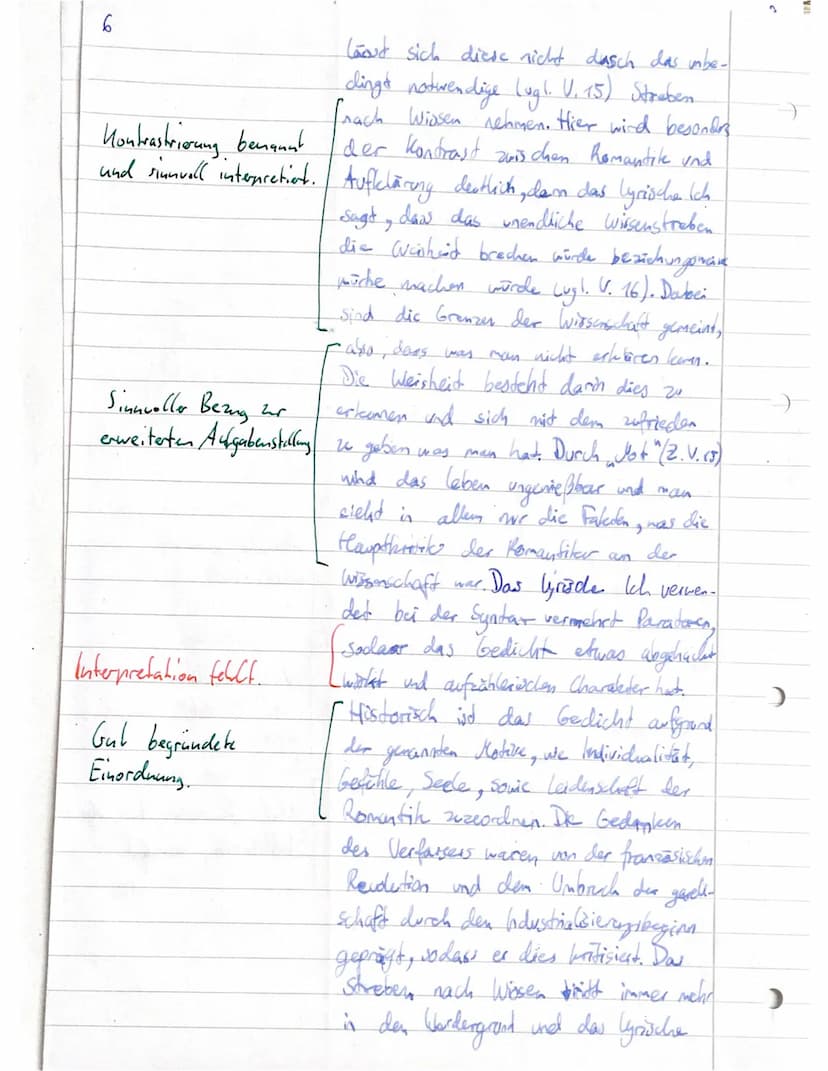 6
lässt sich diese nicht dasch das unbe-
dingt notwendige (vgl. V. 15) Streben
nach Wissen nehmen. Hier wird besonders
der Kontrast zwischen Romantik und
Aufklärung deutlich, denn das lyrische Ich
sagt, dass das unendliche Wissenstreben
die Weisheit brechen würde beziehungsweise
machen würde (vgl. V. 16). Dabei
sind die Grenzen der Wissenschaft gemeint,
also, dass was man nicht erklären kann.
Die Weisheit besteht darin dies zu
erkennen und sich mit dem zufrieden
zu geben was man hat. Durch „Not" (Z. V. 15)
wird das Leben ungenießbar und man
sieht in allem nur die Fakten, was die
Hauptkritik der Romantiker an der
Wissenschaft war. Das lyrische Ich verwen-
det bei der Syntax vermehrt Parataxen,
sodass das Gedicht etwas abgehackt
wirkt und aufzählerischen Charakter hat.
Historisch ist das Gedicht aufgrund
der genannten Motive, wie Individualität,
Gefühle, Seele, sowie Leidenschaft der
Romantik zuzeordnen. Die Gedanken
des Verfassers waren von der französischen
Revolution und dem Umbruch der gesell-
schaft durch den Industrialisierungsbeginn
geprägt, sodass er dies kritisiert. Das
Streben nach Wissen tritt immer mehr
in den Vordergrund und das lyrische
Kontrastierung benannt
und sinnvoll interpretiert.
Sinnvoller Bezug zur
erweiterten Aufgabenstellung
Interpretation fehlt.
Gut begründete
Einordnung.